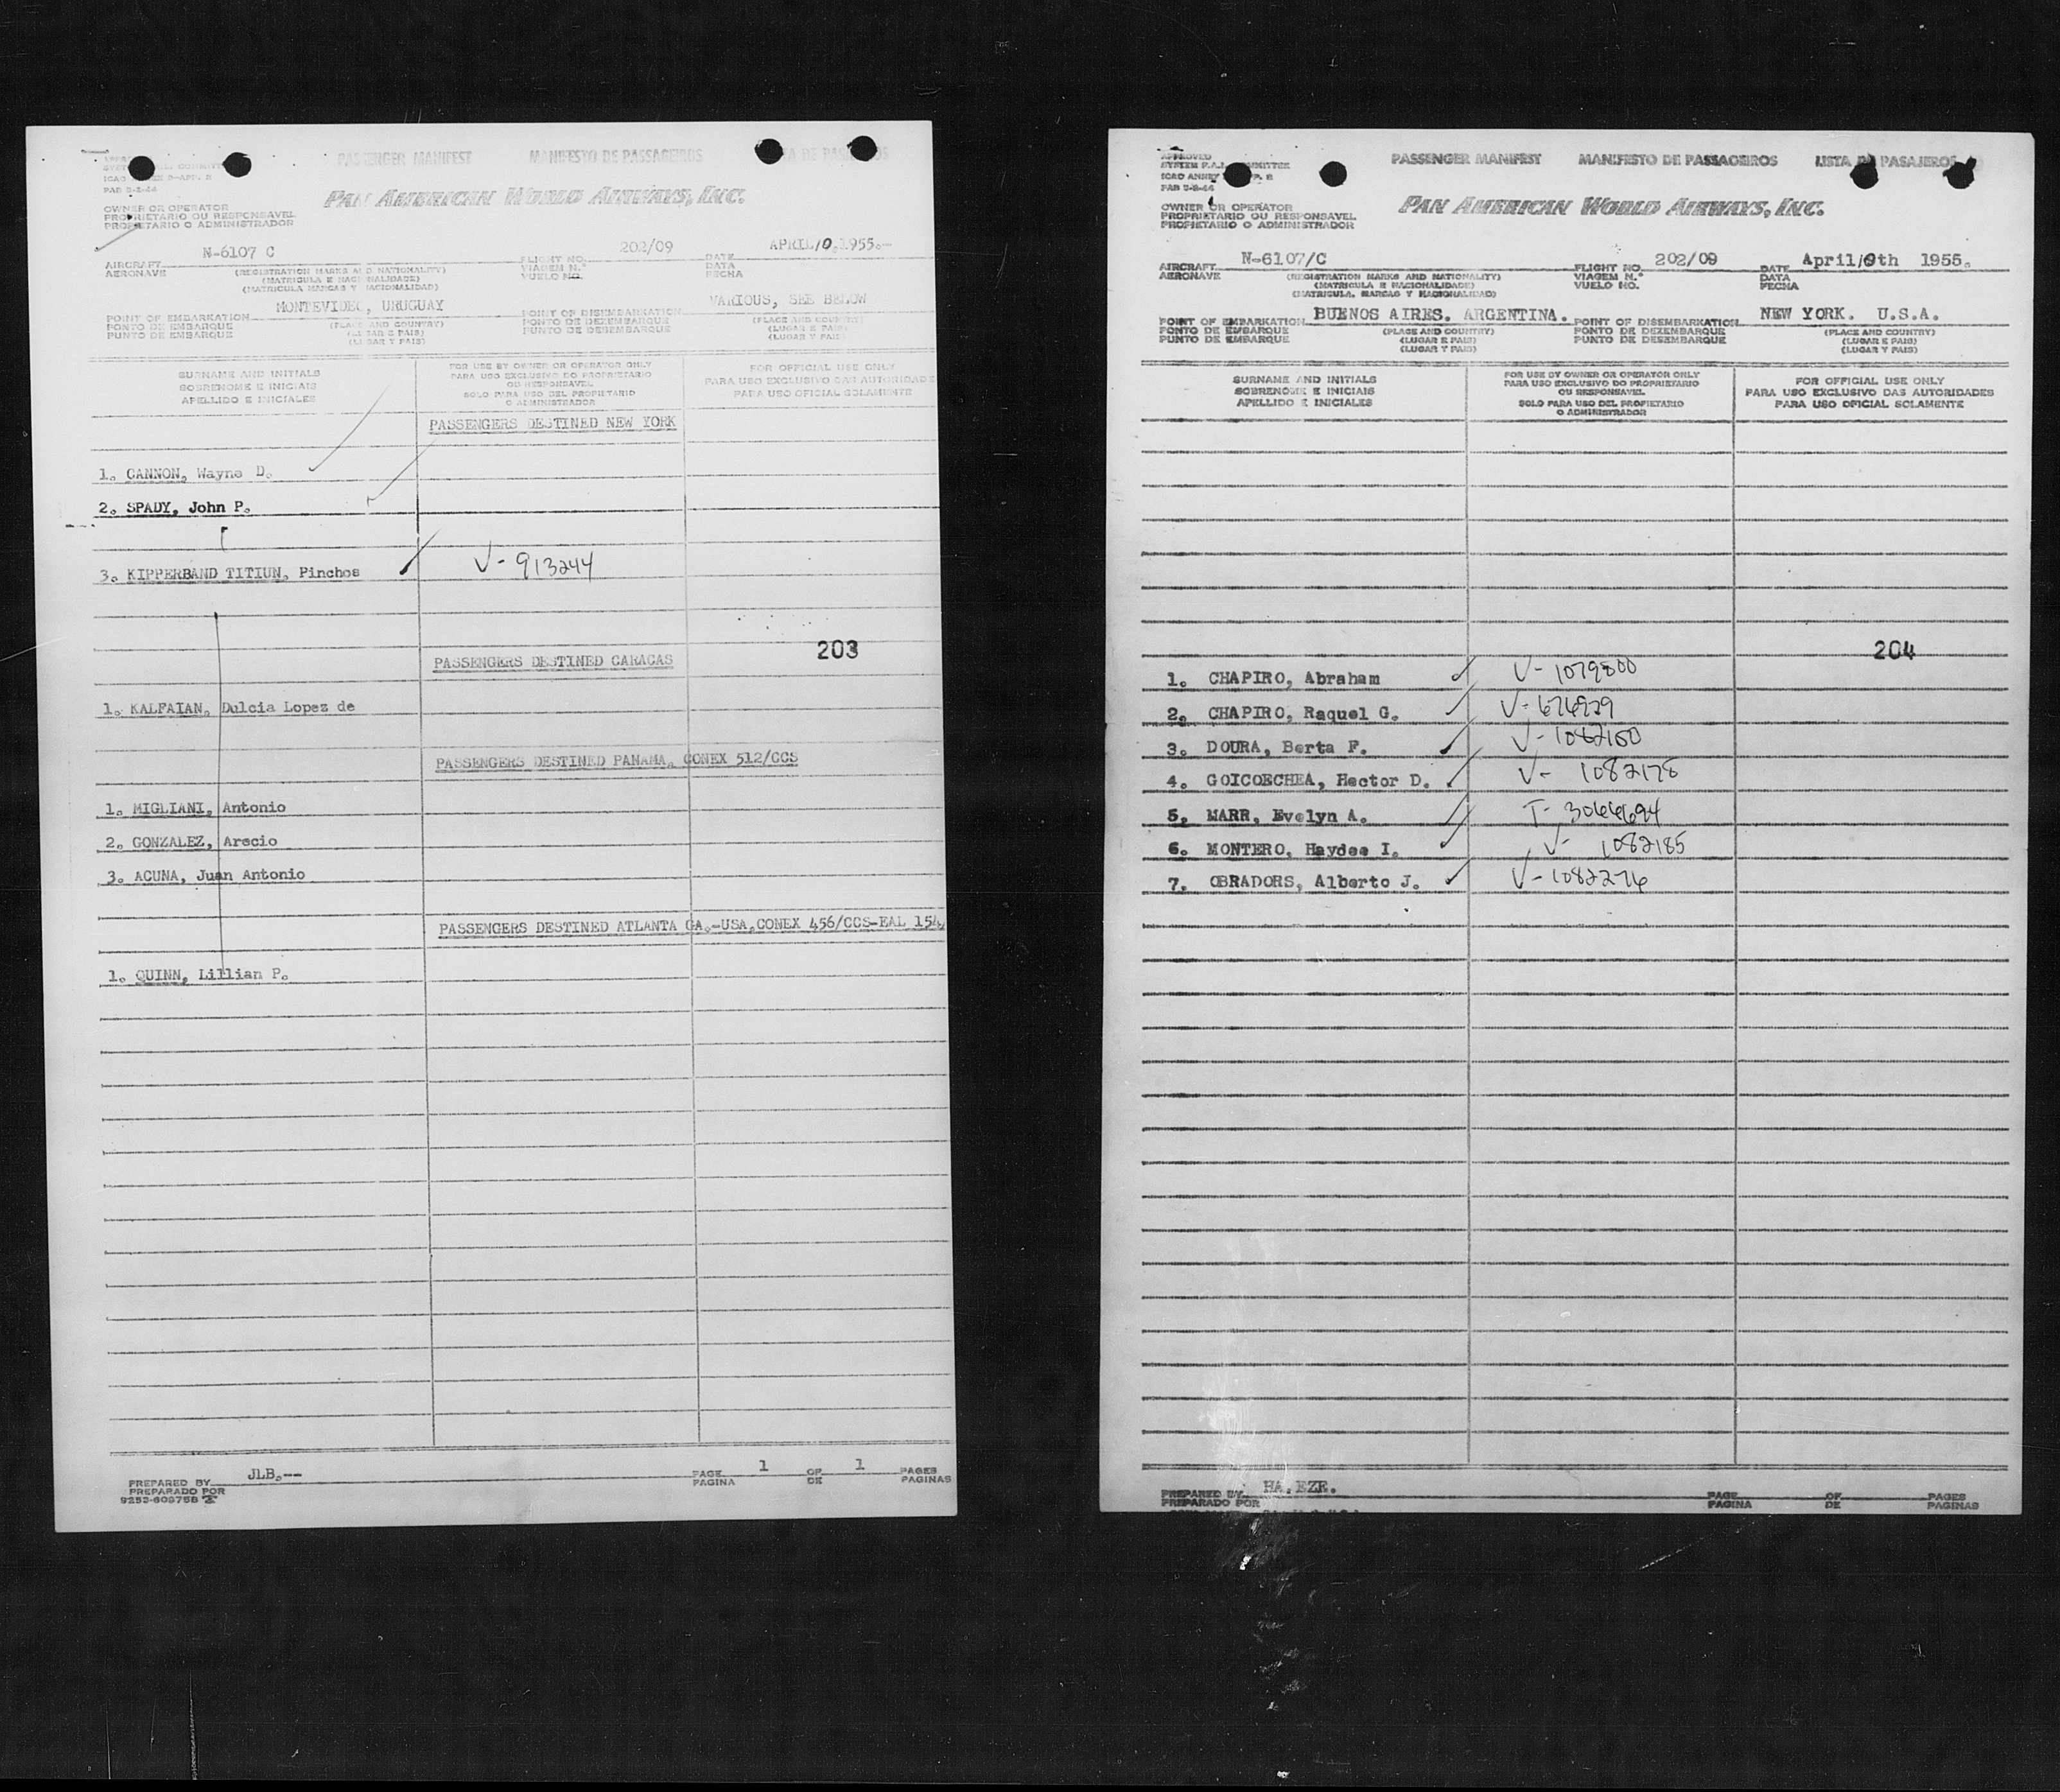 PASSENGER MANIFEST MANIFESTO DE PASSAGEIROS
ICAO
PAB 5-2-44
PAN AMERICAN WORLD AIRWAYS, INC.
OWNER OR OPERATOR
PROPRIETARIO OU RESPONSAVEL
PROPIETARIO O ADMINISTRADOR
AIRCRAFT N-6107 C FLIGHT NO. 202/09 DATE APRIL/0,1955.—
AERONAVE (REGISTRATION MARKS AND NATIONALITY) VIAGEM N.° DATA
(MATRICULA E NACIONALIDADE) VUELO NO. FECHA
(MATRICULA MARCAS Y NACIONALIDAD)
POINT OF EMBARKATION MONTEVIDEO, URUGUAY POINT OF DISEMBARKATION VARIOUS, SEE BELOW
PONTO DE EMBARQUE (PLACE AND COUNTRY) PONTO DE DEZEMBARQUE (PLACE AND COUNTRY)
PUNTO DE EMBARQUE (LUGAR E PAIS) PUNTO DE DESEMBARQUE (LUGAR E PAIS)
(LUGAR Y PAIS) (LUGAR Y PAIS)
SURNAME AND INITIALS
SOBRENOME E INICIAIS
APELLIDO E INICIALES
FOR USE BY OWNER OR OPERATOR ONLY
PARA USO EXCLUSIVO DO PROPRIETARIO
OU RESPONSAVEL
SOLO PARA USO DEL PROPIETARIO
O ADMINISTRADOR
FOR OFFICIAL USE ONLY
PARA USO EXCLUSIVO DAS AUTORIDADE
PARA USO OFICIAL SOLAMENTE
PASSENGERS DESTINED NEW YORK
1. CANNON, Wayne D.
2. SPADY, John P.
3. KIPPERBAND TITIUN, Pinchos V-913244
203
PASSENGERS DESTINED CARACAS
1. KALFAIAN, Dulcia Lopez de
PASSENGERS DESTINED PANAMA, CONEX 512/CCS
1. MIGLIANI, Antonio
2. GONZALEZ, Arecio
3. ACUNA, Juan Antonio
PASSENGERS DESTINED ATLANTA GA.-USA,CONEX 456/CCS-EAL 154,
1. QUINN, Lillian P.
PREPARED BY JLB.-- PAGE 1 OF 1 PAGES
PREPARADO POR PAGINA DE PAGINAS
PASSENGER MANIFEST MANIFESTO DE PASSAGEIROS LISTA DE PASAJEROS
APPROVED
ICAO ANNEX
PAB 5-2-44
PAN AMERICAN WORLD AIRWAYS, INC.
OWNER OR OPERATOR
PROPRIETARIO OU RESPONSAVEL
PROPIETARIO O ADMINISTRADOR
AIRCRAFT N-6107/C FLIGHT NO. 202/09 DATE April/0th 1955.
AERONAVE (REGISTRATION MARKS AND NATIONALITY) VIAGEM N.° DATA
(MATRICULA E NACIONALIDADE) VUELO NO. FECHA
(MATRICULA, MARCAS Y NACIONALIDAD)
POINT OF EMBARKATION BUENOS AIRES. ARGENTINA. POINT OF DISEMBARKATION NEW YORK. U.S.A.
PONTO DE EMBARQUE (PLACE AND COUNTRY) PONTO DE DEZEMBARQUE (PLACE AND COUNTRY)
PUNTO DE EMBARQUE (LUGAR E PAIS) PUNTO DE DESEMBARQUE (LUGAR E PAIS)
(LUGAR Y PAIS) (LUGAR Y PAIS)
SURNAME AND INITIALS
SOBRENOME E INICIAIS
APELLIDO E INICIALES
FOR USE BY OWNER OR OPERATOR ONLY
PARA USO EXCLUSIVO DO PROPRIETARIO
OU RESPONSAVEL
SOLO PARA USO DEL PROPIETARIO
O ADMINISTRADOR
FOR OFFICIAL USE ONLY
PARA USO EXCLUSIVO DAS AUTORIDADES
PARA USO OFICIAL SOLAMENTE
204
1. CHAPIRO, Abraham V-1079800
2. CHAPIRO, Raquel G.
3. DOURA, Berta F.
4. GOICOECHEA, Hector D. V- 1082178
5. MARR, Evelyn A.
6. MONTERO, Haydee I. V- 1082185
7. OBRADORS, Alberto J. V-1082276
PREPARED BY HA.EZE. PAGE OF PAGES
PREPARADO POR PAGINA DE PAGINAS